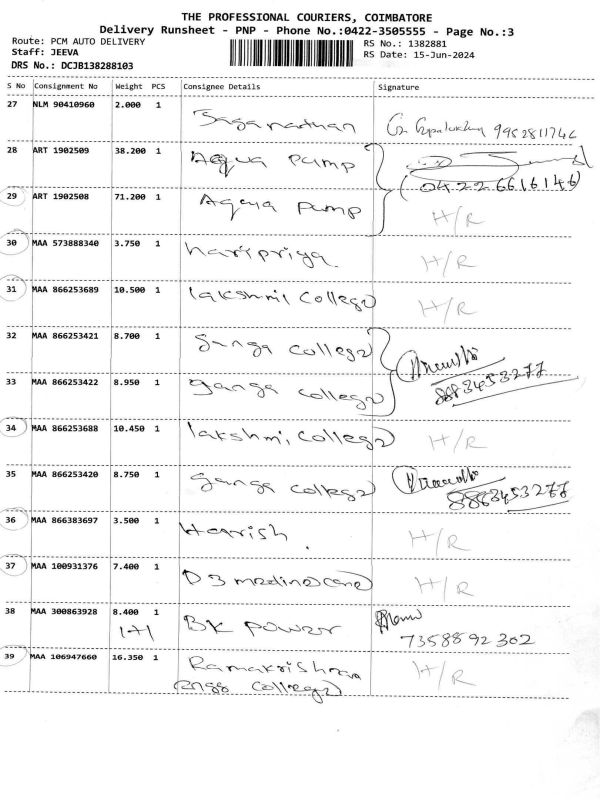 THE PROFESSIONAL COURIERS, COIMBATORE
Delivery Runsheet - PNP - Phone No.:0422-3505555 - Page No.:3
Route: PCM AUTO DELIVERY RS No.: 1382881
Staff: JEEVA RS Date: 15-Jun-2024
DRS No.: DCJB138288103
S No Consignment No Weight PCS Consignee Details Signature
27 NLM 90410960 2.000 1
9952811746
28 ART 1902509 38.200 1 Aqua Pump
0422 6616146
29 ART 1902508 71.200 1 Aqua Pump H/R
30 MAA 573888340 3.750 1 haripriya H/R
31 MAA 866253689 10.500 1 lakshmi College H/R
32 MAA 866253421 8.700 1 ganga College
8883453277
33 MAA 866253422 8.950 1 ganga College
34 MAA 866253688 10.450 1 lakshmi College H/R
35 MAA 866253420 8.750 1 ganga College
8883453277
36 MAA 866383697 3.500 1 Harish. H/R
37 MAA 100931376 7.400 1 H/R
38 MAA 300863928 8.400 1 BK Power
1+1 7358892302
39 MAA 106947660 16.350 1 Ramakrishna H/R
engg College